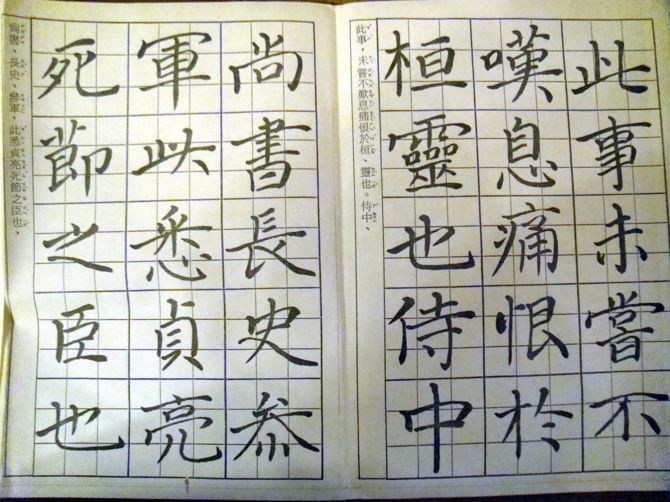 此事未嘗不
嘆息痛恨於
桓靈也侍中
此事,未嘗不歎息痛恨於桓、靈也。侍中、
尚書長史叅
軍此悉貞亮
死節之臣也
尚書、長史、參軍,此悉貞亮死節之臣也,